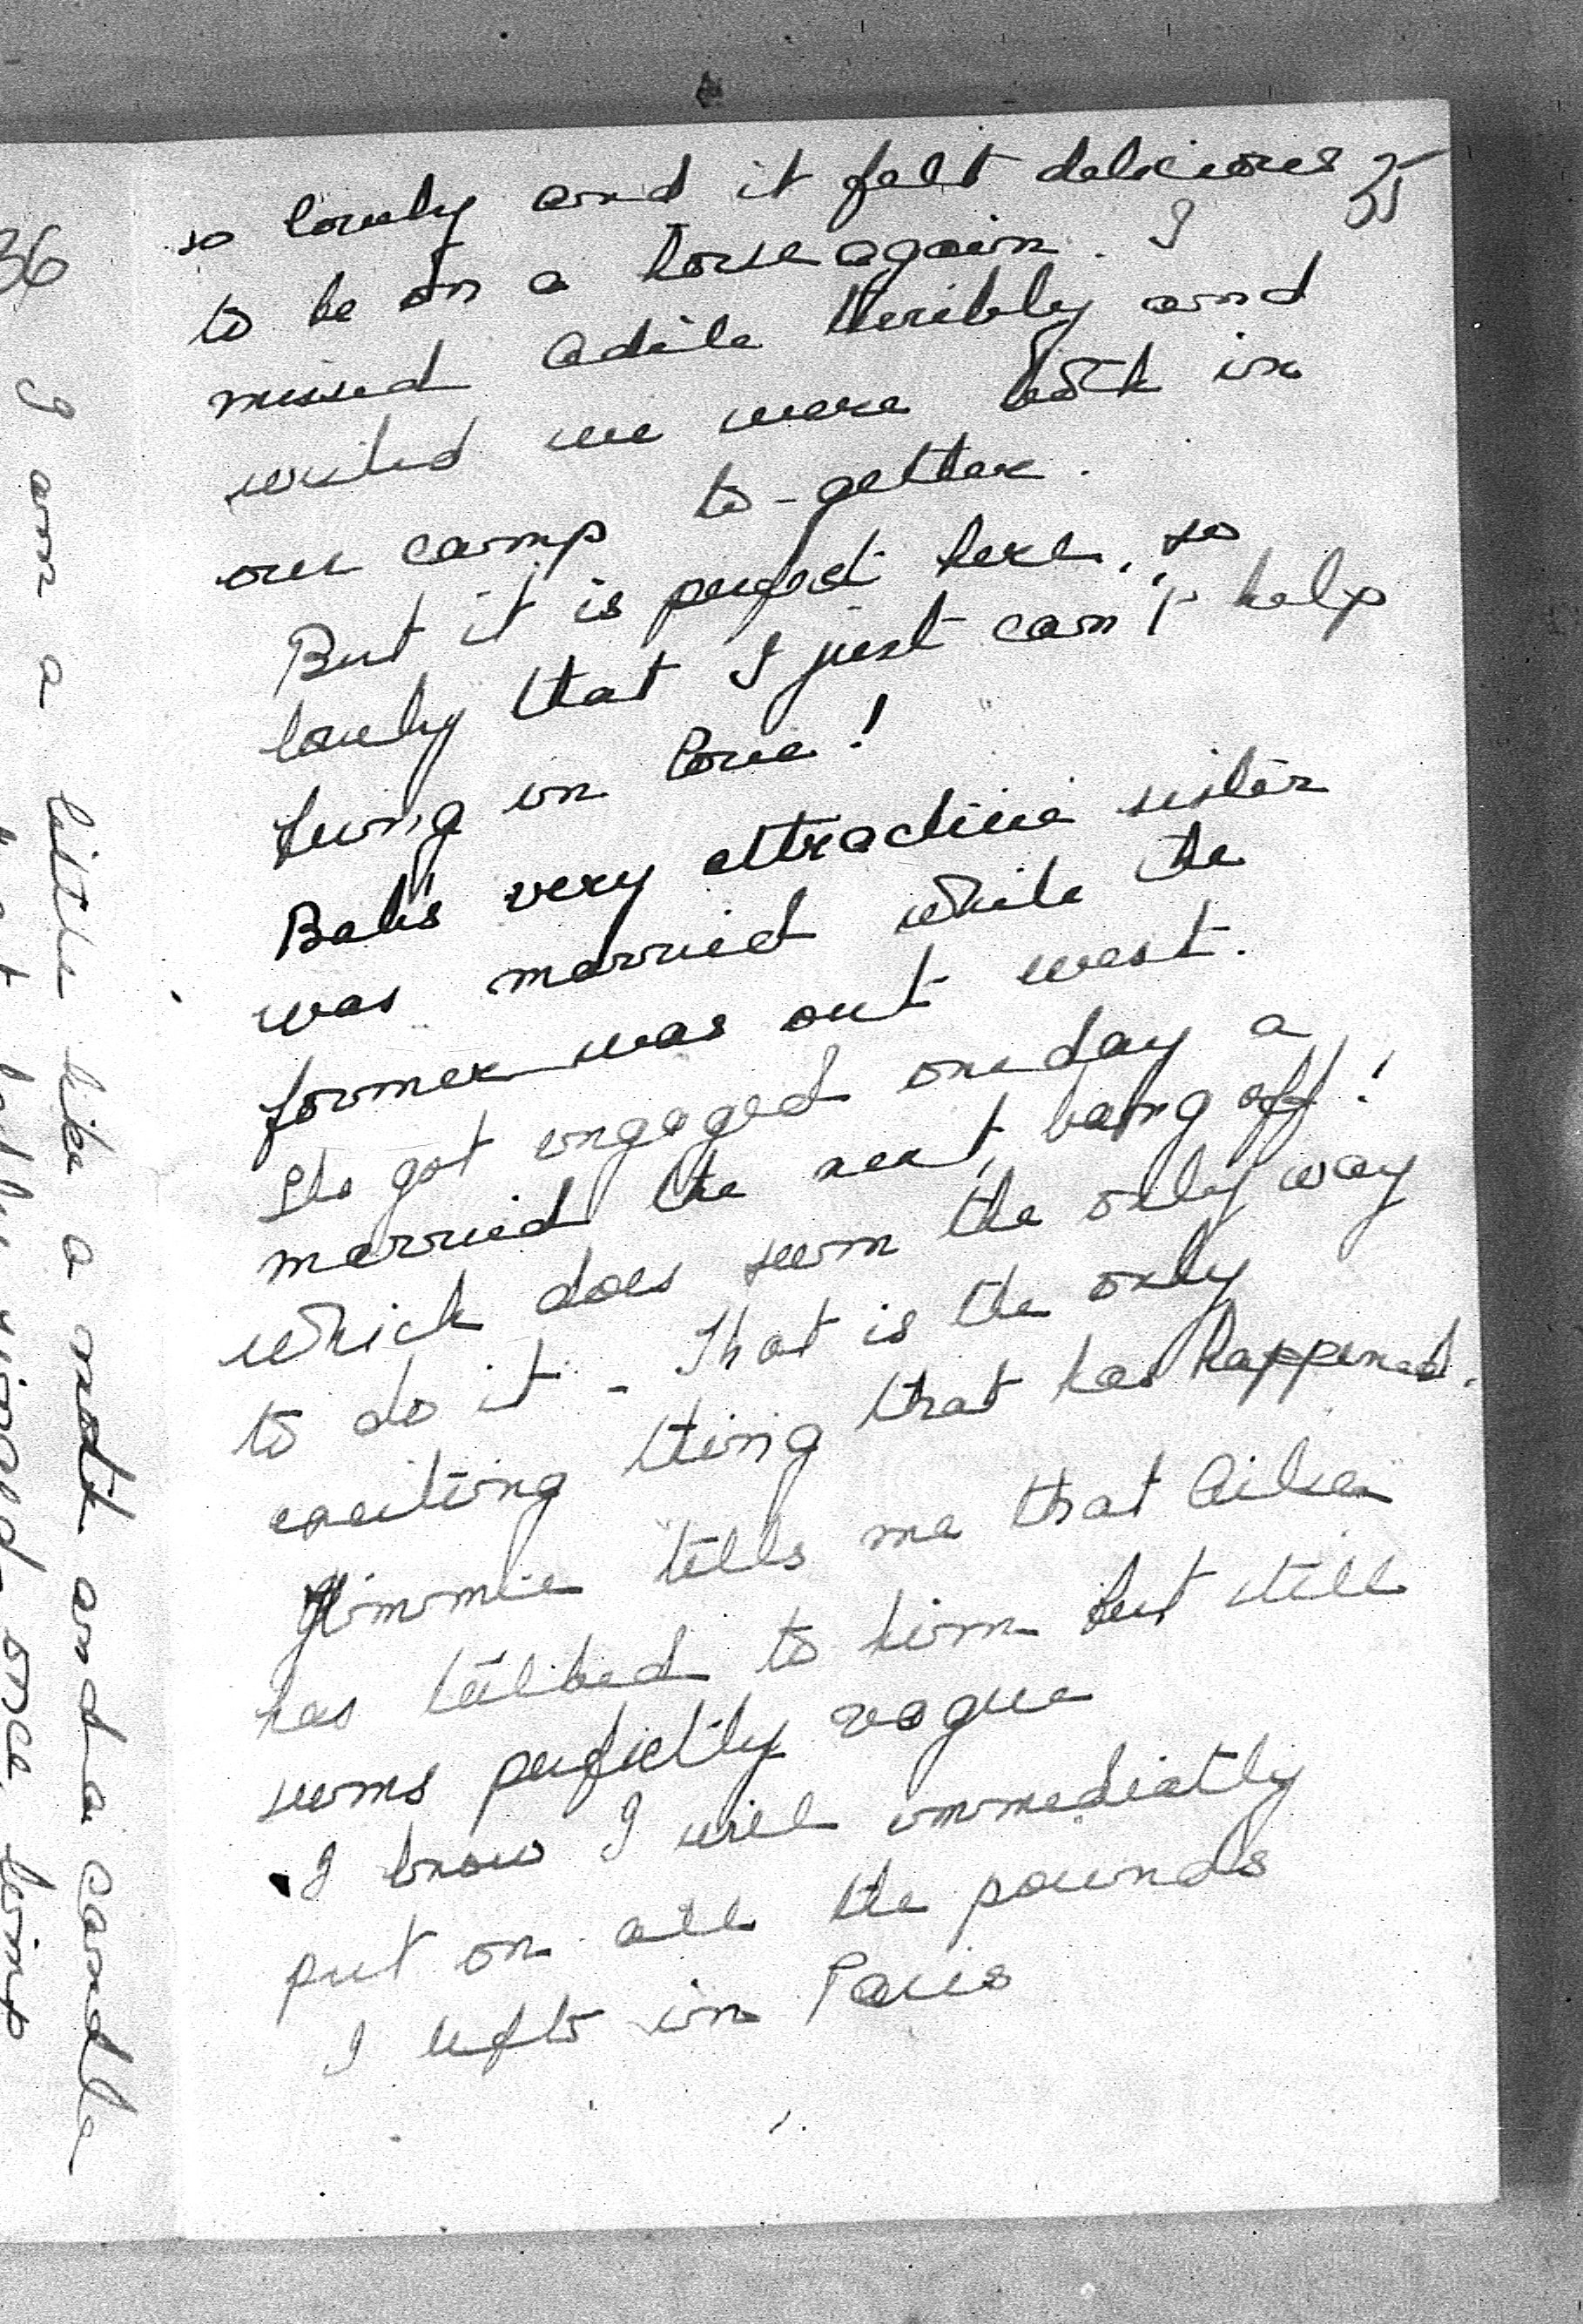 so lovely and it felt delicious 35
to be on a horse again. I
missed Adile terribly and
wished we were both in
our camp to-gether.
But it is perfect here, so
lovely that I just can't help
being in love!
Bab's very attractive sister
was married while the
former was out west.
She got engaged one day a
married the next, bang off!
which does seem the only way
to do it - That is the only
exciting thing that has happened.
Jimmie tells me that
has talked to him but still
seems perfectly vague
I know I will immediatly
put on all the pounds
I left in Paris
36
I am a little like a moth and a candle
once, being